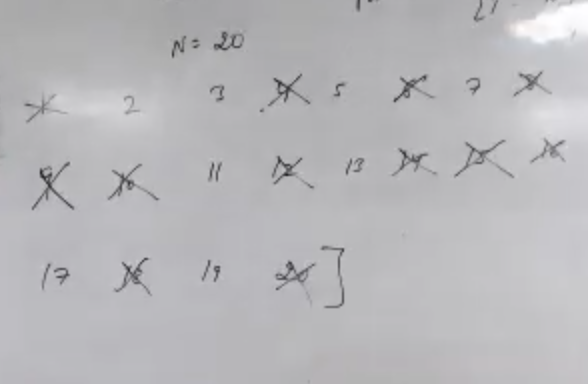 N = 20
1 2 3 4 5 6 7 8
9 10 11 12 13 14 15 16
17 18 19 20 ]